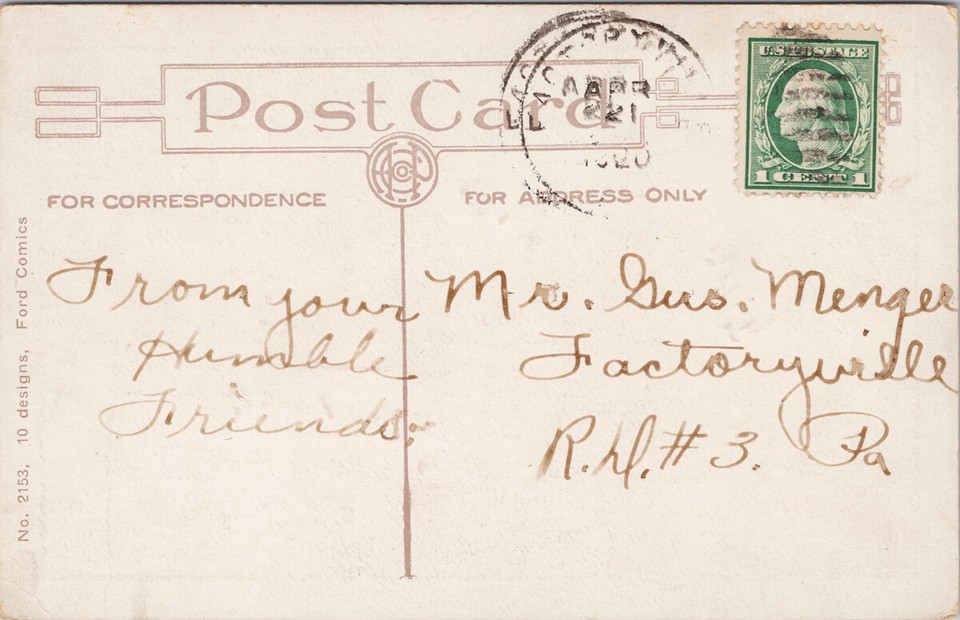 Post Card
FOR CORRESPONDENCE
FOR ADDRESS ONLY
APR
21
U.S. POSTAGE
1 CENT 1
From your
Humble
Friends.
Mr. Gus. Menger
Factoryville
R.D. # 3. Pa
No. 2153, 10 designs, Ford Comics